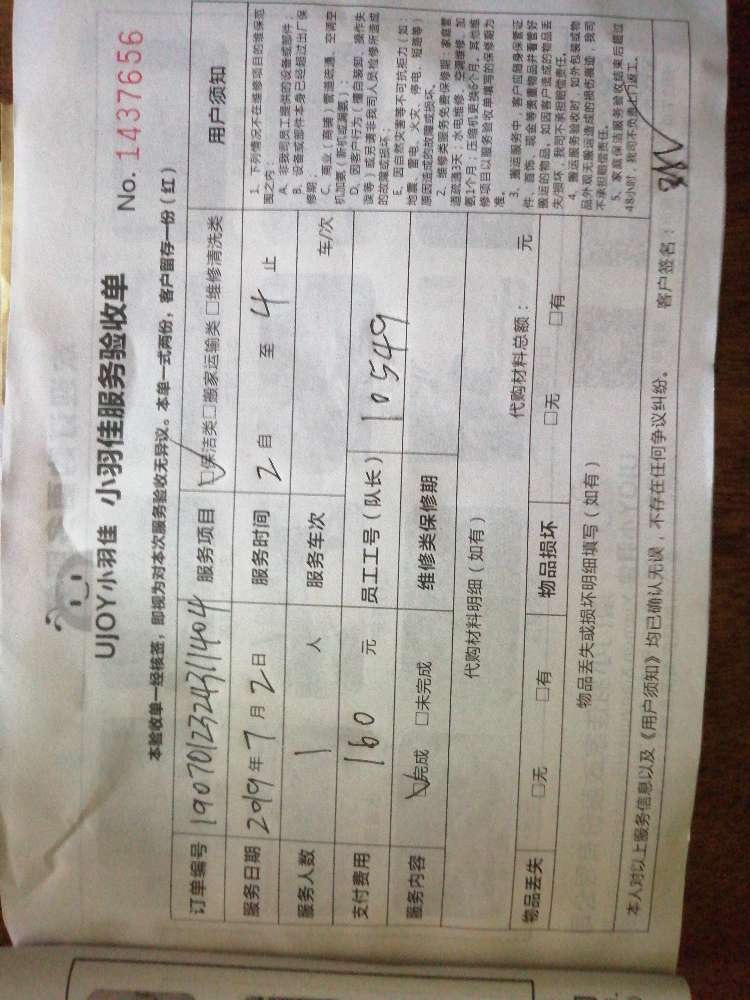 UJOY小羽佳 小羽佳服务验收单
No. 1437656
本验收单一经核签，即视为对本次服务验收无异议。本单一式两份，客户留存一份（红）
订单编号 190701232431140 4 服务项目 ☑保洁类□搬家运输类 □维修清洗类
服务日期 2019年 7 月 2 日 服务时间 2 自 至 4 止
服务人数 1 人 服务车次 车/次
支付费用 160 元 员工工号（队长） 10549
服务内容 ☑完成 □未完成 维修类保修期
代购材料明细（如有）
代购材料总额： 元
物品丢失 □无 □有 物品损坏 □无 □有
物品丢失或损坏明细填写（如有）
用户须知
1、下列情况不在维修项目的维保范
围之内：
A、非我司员工提供的设备或部件；
B、设备或部件本身已经超过出厂保
修期；
C、商业（商铺）管道疏通、空调空
机加氨（新机或漏氨）；
D、因客户行为（擅自装卸、操作失
误等）或另请非我司人员检修所造成
的故障或损坏；
E、因自然灾害等不可抗拒力（如：
地震、雷电、火灾、停电、短路等）
原因造成的故障或损坏。
2、维修类服务免费保修期：家庭管
道疏通3天；水电维修、空调维修、加
氨1个月；压缩机更换6个月，其他维
修项目以服务验收单填写的保修期为
准。
3、搬运服务中，客户应随身保管证
件、首饰、现金等贵重物品并看管好
搬运的物品。如因客户造成的物品丢
失/损坏，我司不承担赔偿责任。
4、搬运服务验收时，如外包装或物
品外观无搬运造成的损伤痕迹，我司
不承担赔偿责任。
5、家庭保洁服务验收结束后超过
48小时，我司不负责上门返工。
本人对以上服务信息以及《用户须知》均已确认无误，不存在任何争议纠纷。 客户签名：